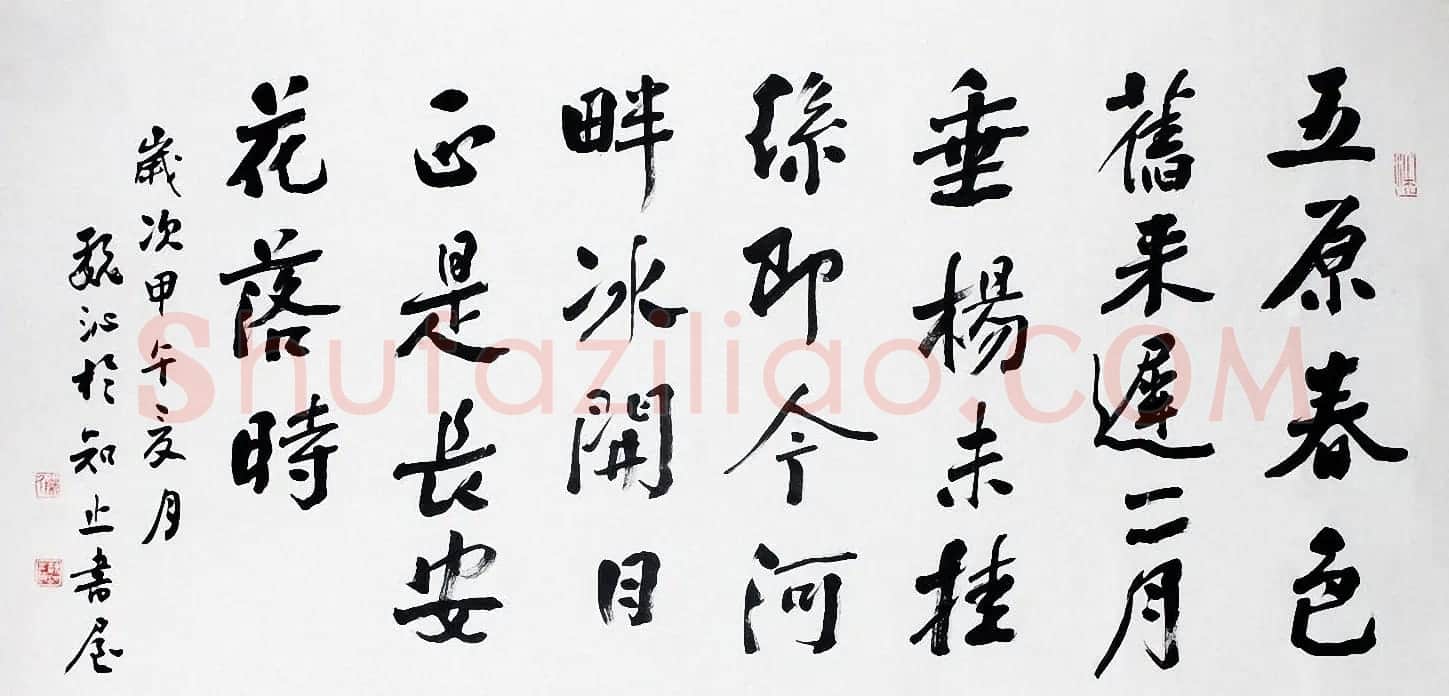 五原春色
舊来遲二月
垂楊未挂
絲即今河
畔冰開日
正是長安
花落時
歲次甲午夏月
魏沁於知止書屋
Shufaziliao.COM